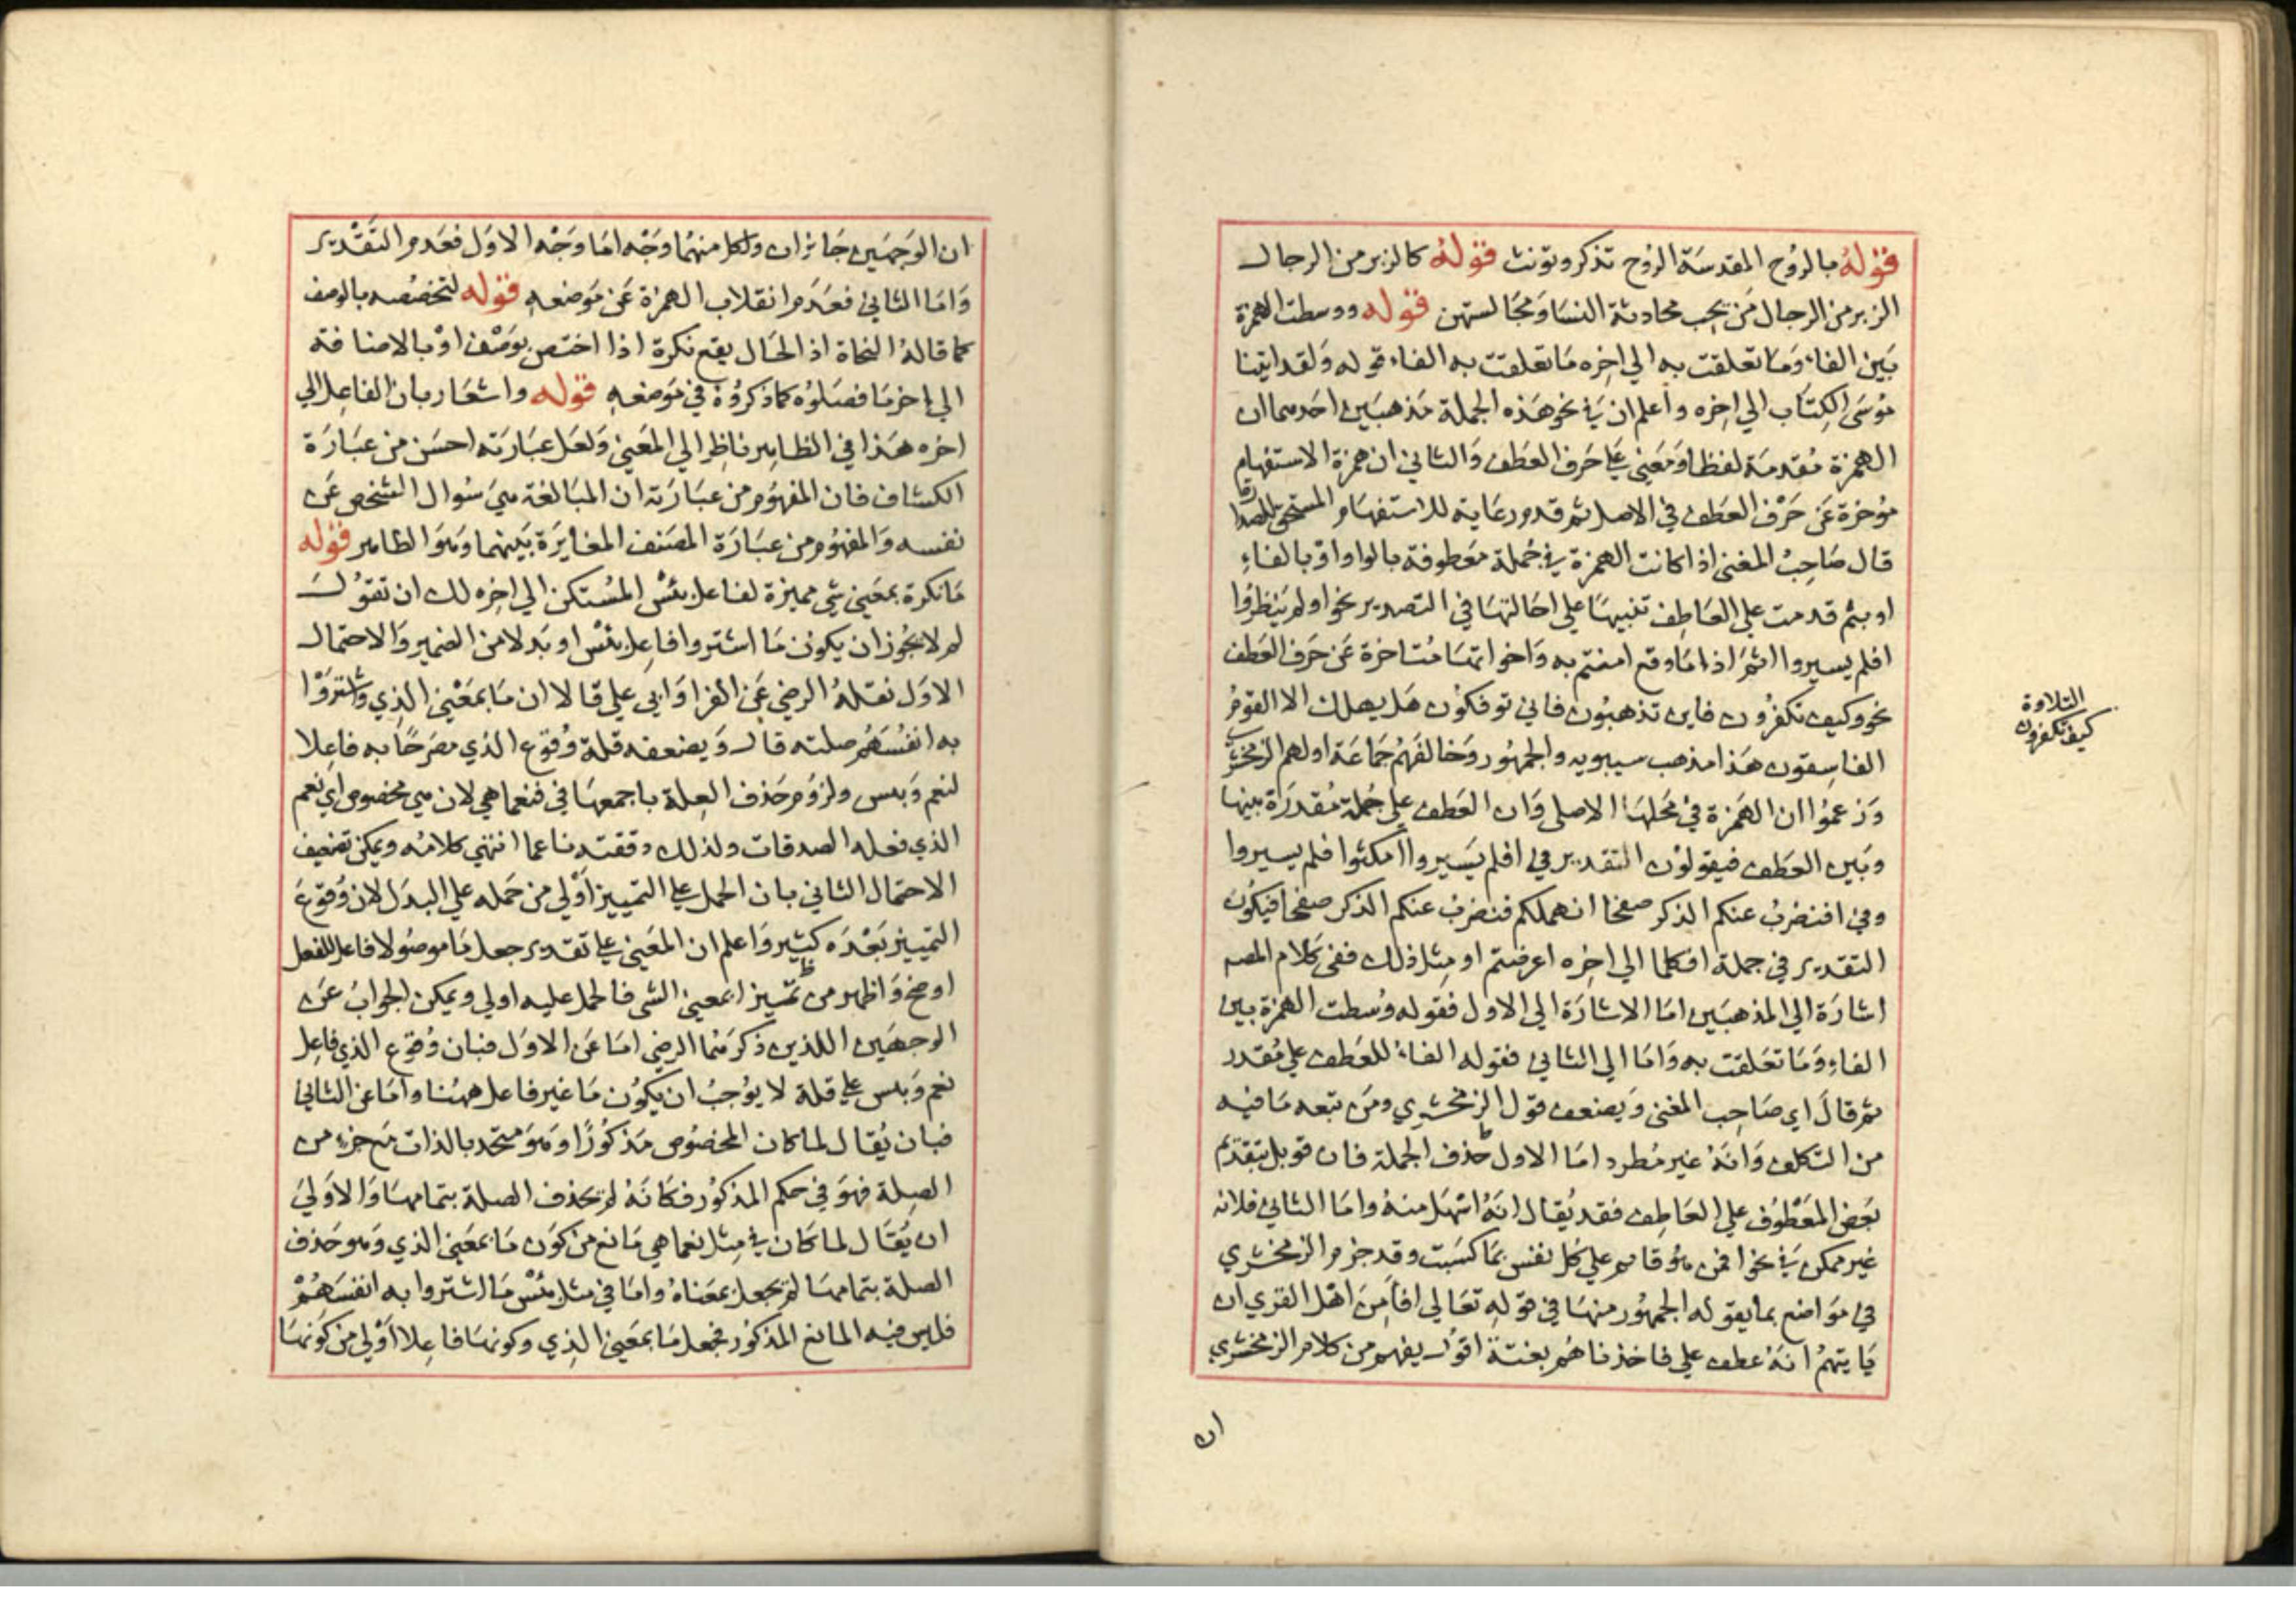 قوله بالروح المقدسة الروح تذكر وتونث قوله كالزير من الرجال
الزير من الرجال من يحب محادثة النسا ومجالستهن قوله ووسطت الهمزة
بين الفاء وما تعلقت به الي اخره ما تعلقت به الفاء قوله ولقد اتينا
موسى الكتاب الي اخره واعلم ان في نحو هذه الجملة مذهبين احدهما ان
الهمزة مقدمة لفظا ومعني علي حرف العطف والثاني ان همزة الاستفهام
موخرة عن حرف العطف في الاصل ثم قدم رعاية للاستفهام المستحق للصدارة
قال صاحب المغني اذا كانت الهمزة في جملة معطوفة بالواو او بالفاء
او بثم قدمت علي العاطف تنبيها علي اصالتها في التصدير نحو اولم ينظروا
افلم يسيروا اثم اذا ما وقع امنتم به واخواتها متاخرة عن حرف العطف
نحو وكيف تكفرون فاين تذهبون فاني توفكون هل يهلك الا القوم
الفاسقون هذا مذهب سيبويه والجمهور وخالفهم جماعة اولهم الزمخشري
وزعموا ان الهمزة في محلها الاصلي وان العطف علي جملة مقدرة بينها
وبين العطف فيقولون التقدير في افلم يسيروا امكثوا فلم يسيروا
وفي افنضرب عنكم الذكر صفحا انهملكم فنضرب عنكم الذكر صفحا فيكون
التقدير في جملة افكلما الي اخره اعرفتم او مثل ذلك ففي كلام المصـ
اشارة الي المذهبين اما الاشارة الي الاول فقوله وسطت الهمزة بين
الفاء وما تعلقت به واما الي الثاني فقوله الفاء للعطف علي مقدر
ثم قال اي صاحب المغني ويضعف قول الزمخشري ومن تبعه ما فيه
من التكلف وانه غير مطرد اما الاول حذف الجملة فان قوبل بتقديم
بعض المعطوف علي العاطف فقد يقال انه اسهل منه واما الثاني فلانه
غير ممكن في نحو افمن هو قائم علي كل نفس بما كسبت وقد جزم الزمخشري
في مواضع بما يقوله الجمهور منها في قوله تعالي افامن اهل القري ان
ياتيهم انه عطف علي فاخذناهم بغتة اقول يفهم من كلام الزمخشري
ان
التلاوة
كيف تكفرون
ان الوجهين جائزان ولكل منهما وجه اما وجه الاول فعدم التقدير
واما الثاني فعدم انقلاب الهمزة عن موضعه قوله لتخصصه بالوصف
كما قاله النحاة اذ الحال يقع نكرة اذا اختص بوصف او بالاضافة
الي اخر ما فصلوه كما ذكروه في موضعه قوله واشعار بان الفاعل الي
اخره هذا في الظاهر ناظر الي المعني ولعل عبارته احسن من عبارة
الكشاف فان المفهوم من عبارته ان المبالغة هي سوال الشخص عن
نفسه والمفهوم من عبارة المصنف المغايرة بينهما وهو الظاهر قوله
ما نكرة بمعني شي مميزة لفاعل بئس المستكن الي اخره لك ان تقول
لم لا يجوز ان يكون ما اشتروا فاعل بئس او بدلا من الضمير والاحتمال
الاول نقله الرضي عن الفرا وابي علي قالا ان ما بمعني الذي واشتروا
به انفسهم صلته قال ويضعفه قلة وقوع الذي مصرحا به فاعلا
لنعم وبئس ولزوم حذف الصلة باجمعها في فنعما هي لان هي مخصوص اي نعم
الذي فعله الصدقات ولذلك دققته نما انتهي كلامه ويمكن تضعيف
الاحتمال الثاني بان الحمل علي التمييز اولي من حمله علي البدل لان وقوع
التمييز بعده كثير واعلم ان المعني علي تقدير جعل ما موصولا فاعلا للفعل
اوضح واظهر من تمييز ابمعني الشي فالحمل عليه اولي ويمكن الجواب عن
الوجهين اللذين ذكرهما الرضي اما عن الاول فبان وقوع الذي فاعل
نعم وبئس علي قلة لا يوجب ان يكون ما غير فاعل ههنا واما عن الثاني
فبان يقال لما كان المخصوص مذكورا وهو متحد بالذات مع جزء من
الصلة فهو في حكم المذكور فكانه لم يحذف الصلة بتمامها والاولي
ان يقال لما كان في مثل نعما هي مانع من كون ما بمعني الذي وهو حذف
الصلة بتمامها لم يجعل بمعناه واما في مثل بئس ما اشتروا به انفسهم
فليس فيه المانع المذكور فجعل ما بمعني الذي وكونها فاعلا اولي من كونها